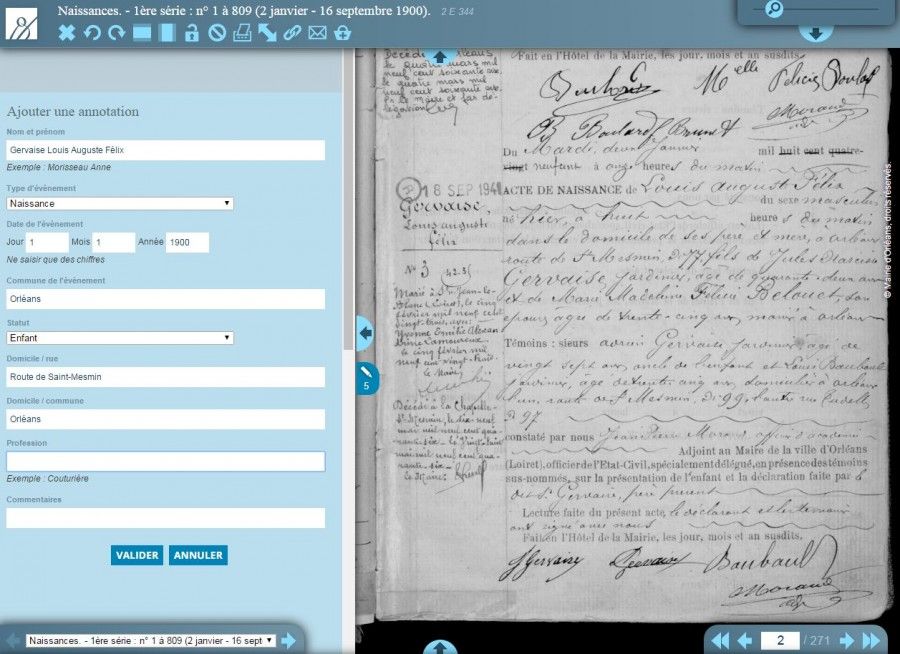 Naissances. - 1ère série : n° 1 à 809 (2 janvier - 16 septembre 1900). 2 E 344
Ajouter une annotation
Nom et prénom
Gervaise Louis Auguste Félix
Exemple : Morisseau Anne
Type d'évènement
Naissance
Date de l'évènement
Jour 1 Mois 1 Année 1900
Ne saisir que des chiffres
Commune de l'évènement
Orléans
Statut
Enfant
Domicile / rue
Route de Saint-Mesmin
Domicile / commune
Orléans
Profession
Exemple : Couturière
Commentaires
VALIDER ANNULER
Naissances. - 1ère série : n° 1 à 809 (2 janvier - 16 sept
5
Décédé à Orléans
le quatre mars mil
neuf cent soixante six
le quatre mars mil
neuf cent soixante six
18 SEP 194
Gervaise,
Louis auguste
félix
N° 3
Marié à St Jean-le-
Blanc (Loiret), le cinq
février mil neuf cent
vingt-trois, avec
Yvonne Emilie
Lamoureux
le cinq février mil
neuf cent vingt-trois
le Maire
Décédé à la Chapelle
St Mesmin, le dix-neuf
mai mil neuf cent
-six - le vingt
mai mil neuf cent
-six
le Maire
Fait en l'Hôtel de la Mairie, les jour, mois et an susdits.
Melle Félicie
Du Mardi, deux Janvier mil huit cent quatre-
vingt neuf cent à onze heures du matin
ACTE DE NAISSANCE de Louis August Félix
du sexe masculin
né hier, à huit heures du matin
dans le domicile de ses père et mère, à orléans
route de St Mesmin, n° 77, fils de Jules
Gervaise jardinier, âgé de quarante-deux ans
et de Marie Madeleine Félicie Belouet, son
épouse âgée de trente-cinq ans, mariés à orléans
Témoins : sieurs Gervaise jardinier, âgé de
vingt sept ans, oncle de l'enfant et Louis Baubault
jardinier, âgé de trente cinq ans, domiciliés à orléans
l'un, route de St Mesmin, n° 99, l'autre rue
n° 97
constaté par nous Jean Pierre officier d'académie
Adjoint au Maire de la ville d'Orléans
(Loiret), officier de l'Etat-Civil, spécialement délégué, en présence des témoins
sus-nommés, sur la présentation de l'enfant et la déclaration faite par
Gervaise, père présent
Lecture faite du présent acte, le déclarant et les témoins
ont signé avec nous
Fait en l'Hôtel de la Mairie, les jour, mois et an susdits.
Gervaise Gervaise Baubault
© Mairie d'Orléans, droits réservés.
2 / 271